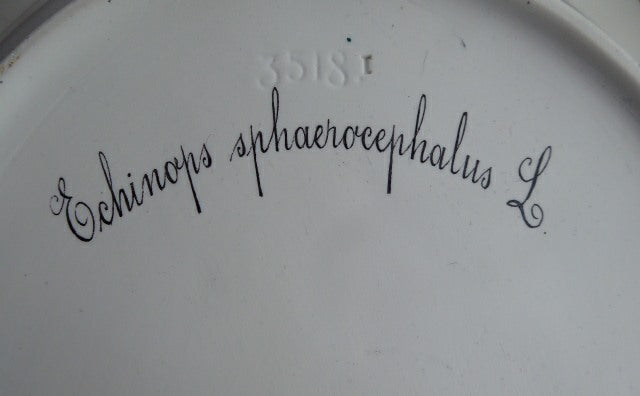 35181
Echinops sphaerocephalus L.